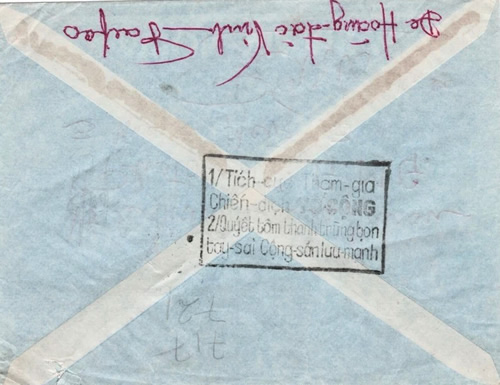 De Hoàng-đắc Vinh-
1/Tích-cực tham-gia
Chiến-dịch tố CỘNG
2/Quyết tâm thanh trừng bọn
tay-sai Cộng-sản lưu-manh
721
717